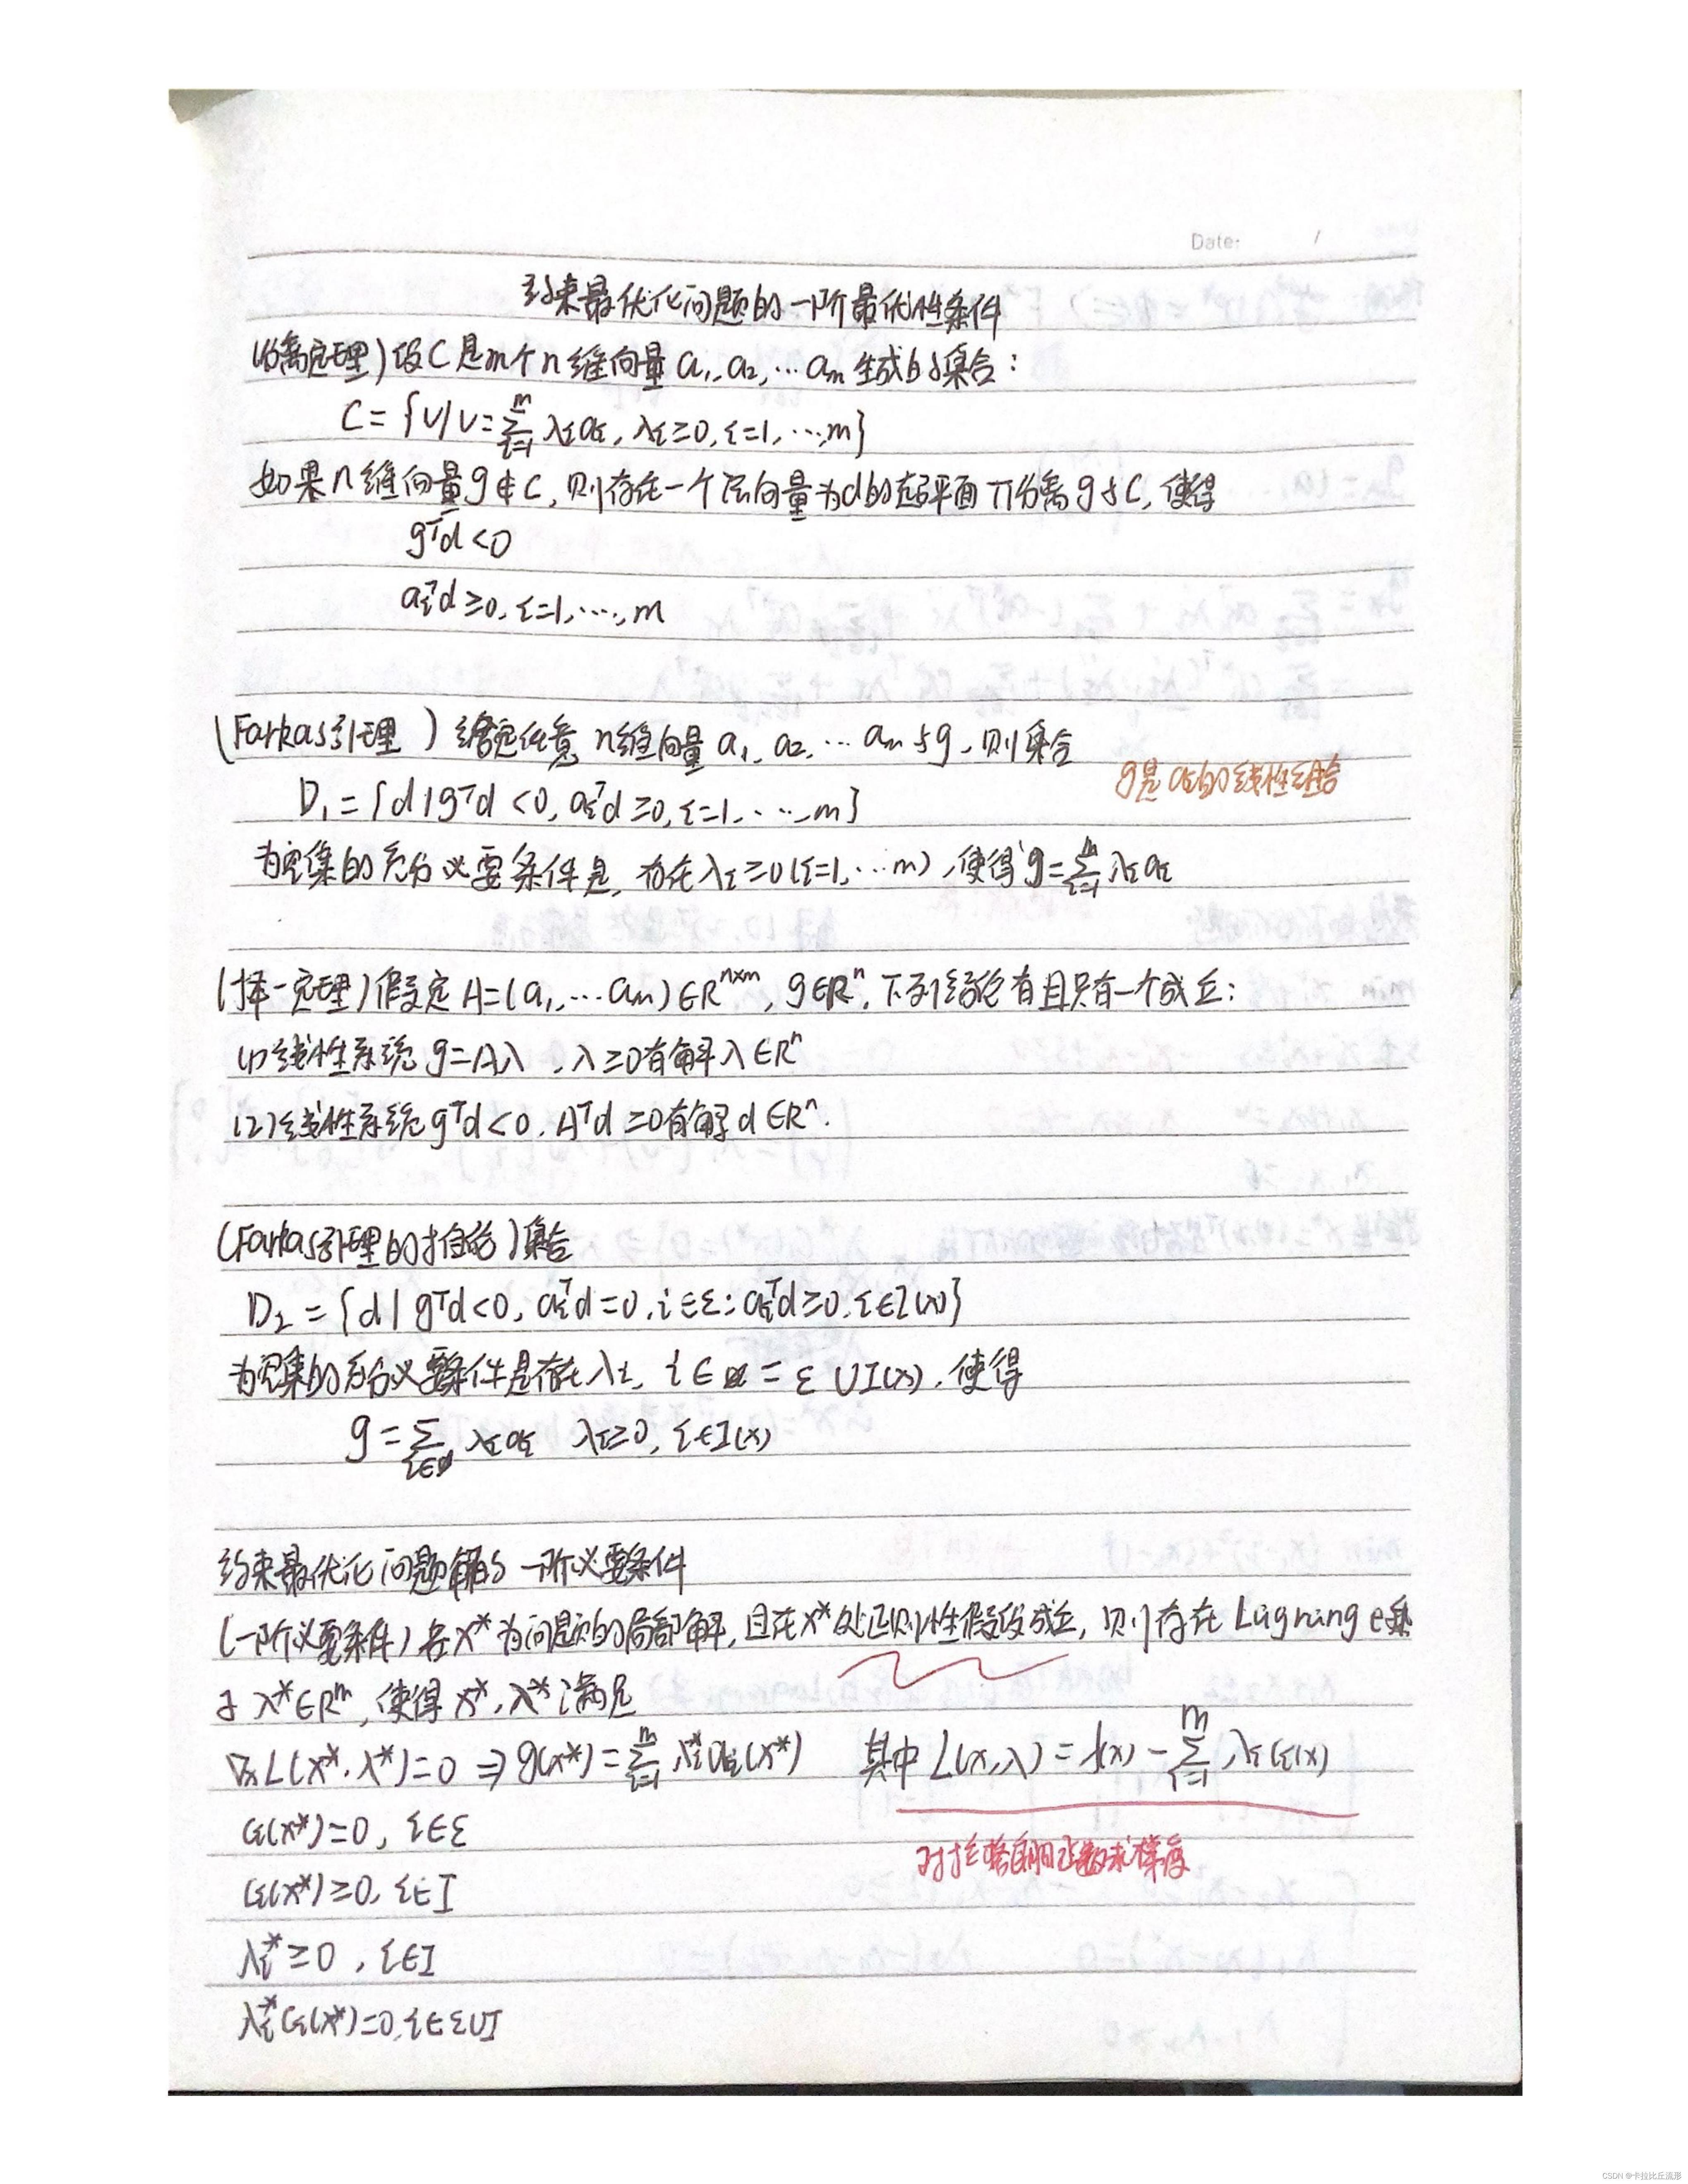 Date: /
约束最优化问题的一阶最优性条件
(分离定理)设C是m个n维向量 a₁,a₂,…aₘ生成的集合:
C={v|v=∑ᵢ₌₁ᵐ λᵢaᵢ, λᵢ≥0, i=1,…,m}
如果n维向量g∉C,则存在一个法向量为d的超平面π分离g与C,使得
gᵀd<0
aᵢᵀd≥0, i=1,…,m
(Farkas引理)给定任意n维向量a₁,a₂,…aₘ与g,则集合
g是aᵢ的线性组合
D₁={d|gᵀd<0, aᵢᵀd≥0, i=1,…,m}
为空集的充分必要条件是,存在λᵢ≥0(i=1,…m),使得g=∑ᵢ₌₁ᵐ λᵢaᵢ
(择一定理)假定A=(a₁,…aₘ)∈Rⁿˣᵐ, g∈Rⁿ,下列结论有且只有一个成立:
(1)线性系统g=Aλ,λ≥0有解λ∈Rⁿ
(2)线性系统gᵀd<0,Aᵀd≥0有解d∈Rⁿ.
(Farkas引理的推论)集合
D₂={d|gᵀd<0, aᵢᵀd=0, i∈ε; aᵢᵀd≥0, i∈I(x)}
为空集的充分必要条件是存在λᵢ, i∈ = ε∪I(x),使得
g=∑ λᵢaᵢ λᵢ≥0, i∈I(x)
约束最优化问题解的一阶必要条件
(一阶必要条件)若x*为问题的局部解,且在x*处正则性假设成立,则存在Lagrange乘
子λ*∈Rᵐ,使得x*,λ*满足
∇ₓL(x*,λ*)=0 ⇒g(x*)=∑ᵢ₌₁ᵐ λᵢ*aᵢ(x*) 其中L(x,λ)=f(x)-∑ᵢ₌₁ᵐ λᵢcᵢ(x)
cᵢ(x*)=0, i∈ε
对拉格朗日函数求梯度
cᵢ(x*)≥0, i∈I
λᵢ*≥0, i∈I
λᵢ*cᵢ(x*)=0, i∈ε∪I
CSDN @卡拉比丘流形